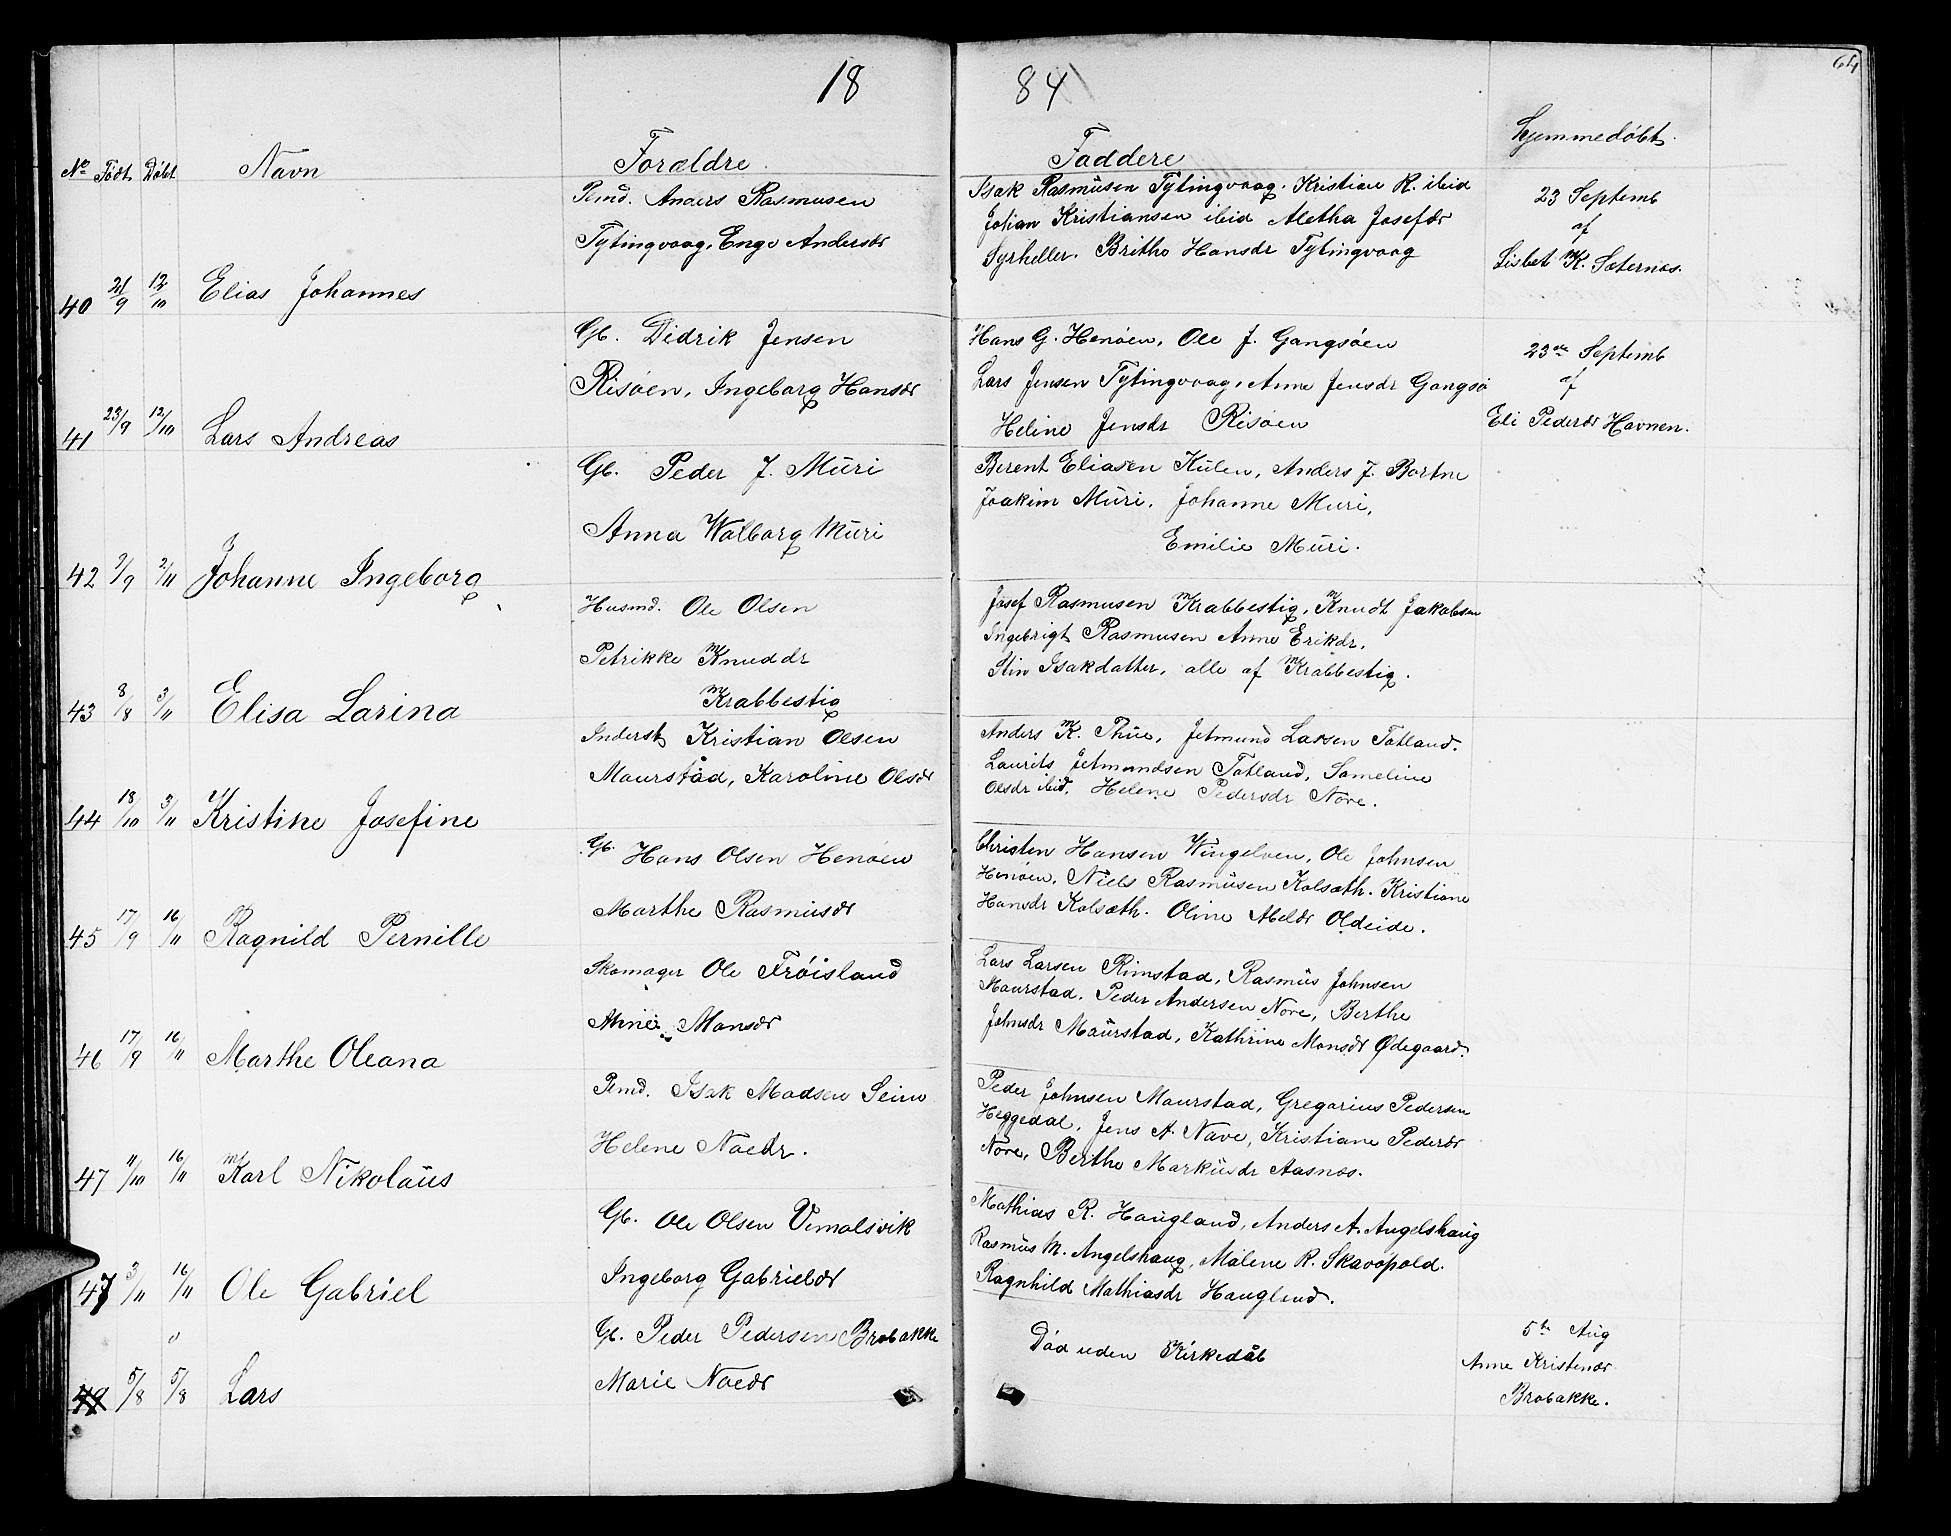 18 84
64
No Født Døbt Navn Forældre Faddere Hjemmedøbt
40 21/9 12/10 Elias Johannes
Pmd. Anders Rasmusen
Tytingvaag, Enge Andersdr
Isak Rasmusen Tytingvaag. Kristian R. ibid
Johan Kristiansen ibid Aletha Josefdr
Syrheller. Brithe Hansdr Tytingvaag
23 Septemb
af
Lisbet K. Sæternæs.
41 23/9 12/10 Lars Andreas
Gb. Didrik Jensen
Risøen, Ingeborg Hansdr
Hans G. Henøen, Ole J. Gangsøen
Lars Jensen Tytingvaag, Anne Jensdr Gangsø
Heline Jensdr Risøen
23de Septemb
af
Eli Pedersdr Havnen.
42 7/9 2/11 Johanne Ingeborg
Gb. Peder J. Muri
Anna Walborg Muri
Berent Eliasen Kulen, Anders J. Bortne
Joakim Muri, Johanne Muri,
Emilie Muri.
43 8/8 3/11 Elisa Larina
Husmd. Ole Olsen
Petrikke Knuddr
Krabbestig
Josef Rasmusen Krabbestig, Knudt Jakobsen
Ingebrigt Rasmusen Anne Erikdr,
Stin Isakdatter, alle af Krabbestig.
44 18/10 3/11 Kristine Josefine
Inderst Kristian Olsen
Maurstad, Karoline Olsdr
Anders K. Thue, Jetmund Larsen Totland.
Laurits Jetmundsen Totland, Sameline
Olsdr ibid, Helene Pedersdr Nore.
45 17/9 16/11 Ragnild Pernille
Gb. Hans Olsen Henøen
Marthe Rasmusdr
Christen Hansen Wingelven, Ole Johnsen
Henøen, Niels Rasmusen Kolsæth. Kristiane
Hansdr Kolsæth. Oline Meldr Oldeide.
46 17/9 16/11 Marthe Oleana
Skomager Ole Frøisland
Anne Monsdr
Lars Larsen Rimstad, Rasmus Johnsen
Maurstad. Peder Andersen Nore, Berthe
Johnsdr Maurstad, Kathrine Monsdr Ødegaard.
47 11/10 16/11 Karl Nikolaus
Pmd. Isak Madsen Seim
Helene Noedr.
Peder Johnsen Maurstad, Gregorius Pedersen
Heggedal, Jens A. Nave, Kristiane Pedersdr
Nore, Berthe Markusdr Aasnæs.
47 3/11 16/11 Ole Gabriel
Gb. Ole Olsen Vemelsvik
Ingeborg Gabrieldr
Mathias R. Haugland, Anders A. Angelshaug
Rasmus M. Angelshaug, Malene R. Skavøpold.
Ragnhild Mathiasdr Haugland.
49 5/8 5/8 Lars
Gb. Peder Pedersen Brobakke
Marie Noedr
Død uden Kirkedåb
5te Aug
Anne Kristendr
Brobakke.